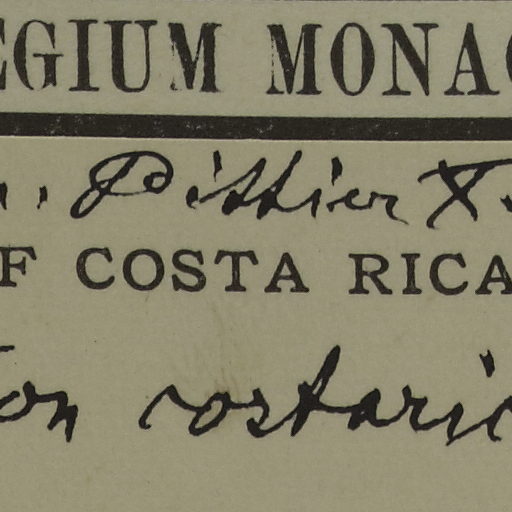 EGIUM MONAC
. Pittier
F COSTA RICA
on costaric